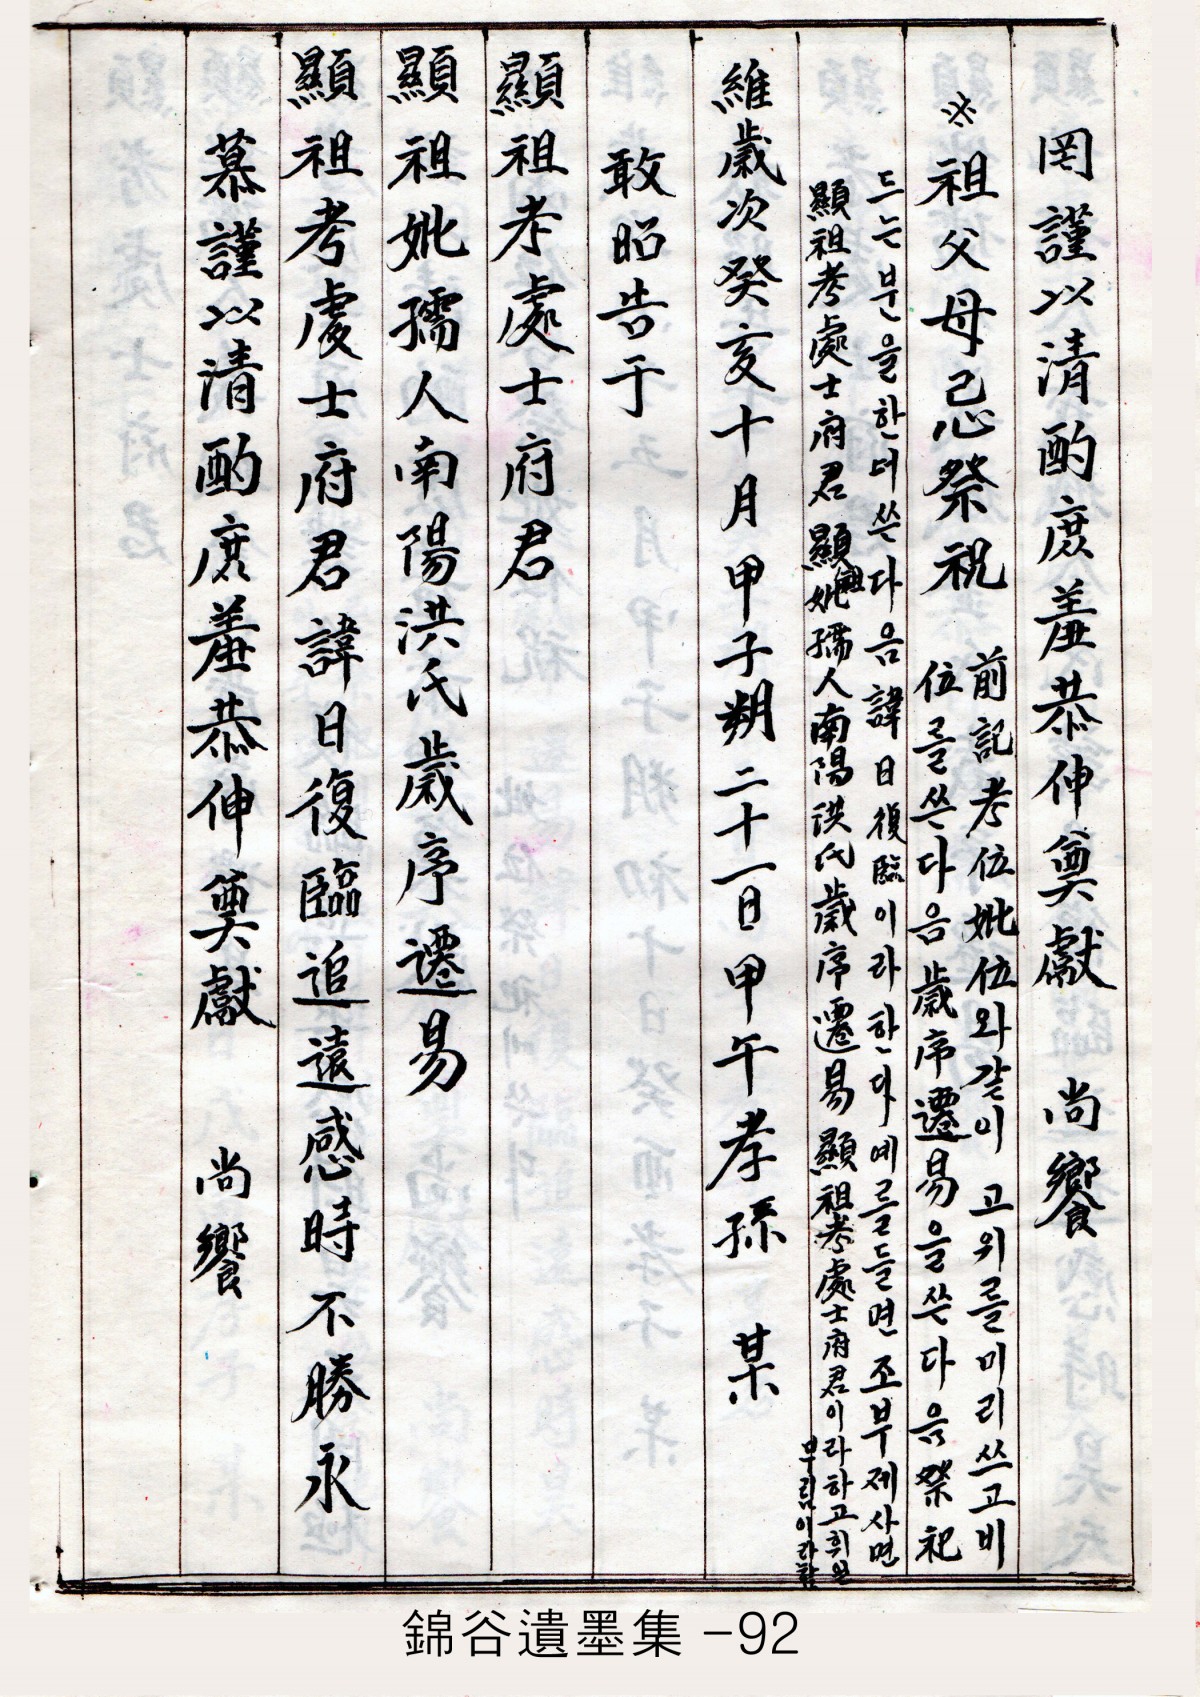 罔謹以清酌庶羞恭伸奠獻 尚饗
※祖父母忌祭祝 前記考位妣位와같이 고위를미리쓰고비
位를쓰다음歲序遷易을쓴다음祭祀
드는분을한더쓴다음諱日復臨이라한다예를들면조부제사면
顯祖考處士府君顯祖妣孺人南陽洪氏歲序遷易顯祖考處士府君이라하고휘일
부림이라함
維歲次癸亥十月甲子朔二十一日甲午孝孫 某
敢昭告于
顯祖考處士府君
顯祖妣孺人南陽洪氏歲序遷易
顯祖考處士府君諱日復臨追遠感時不勝永
慕謹以清酌庶羞恭伸奠獻 尚饗
錦谷遺墨集 -92